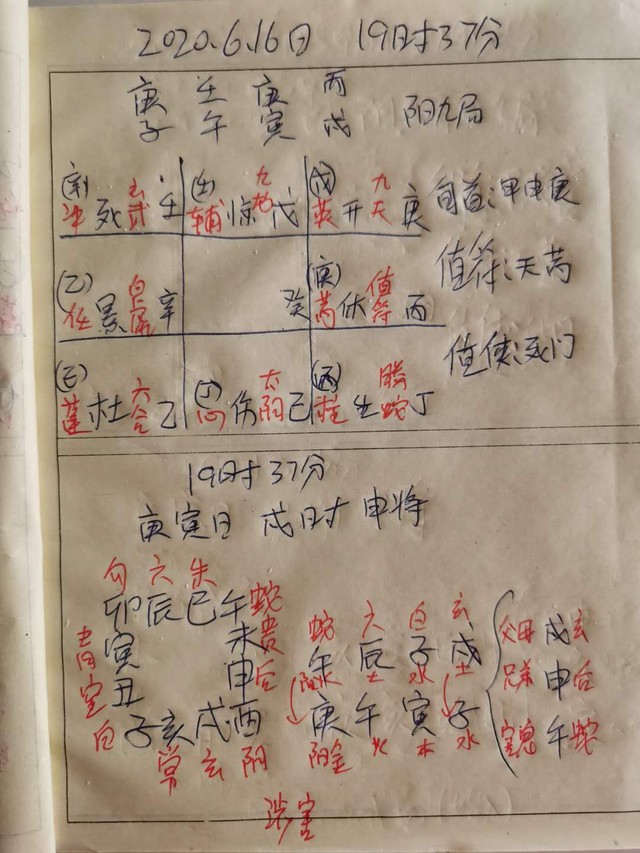 2020.6.16日 19时37分
庚 壬 庚 丙
子 午 寅 戌 阳九局
(辛) 玄 (壬) 九 (戊) 九
冲 死 武 壬 辅 惊 地 戊 英 开 天 庚 旬首:甲申庚
(乙) 白 (庚) 值 值符:天芮
任 景 虎 辛 癸 芮 休 符 丙
值使:死门
(己) 六 (丁) 太 (丙) 腾
蓬 杜 合 乙 心 伤 阴 己 柱 生 蛇 丁
19时37分
庚寅日 戌时 申将
勾 六 朱
卯 辰 巳 午 蛇 蛇 六 白 玄
青 寅 未 贵 午 辰 子 戌 父母 戌 玄
空 丑 申 后 土 水 土 兄弟 申 后
白 子 亥 戌 酉 庚 午 寅 子 午 蛇
常 玄 阴 阳金 火 木 水
涉害